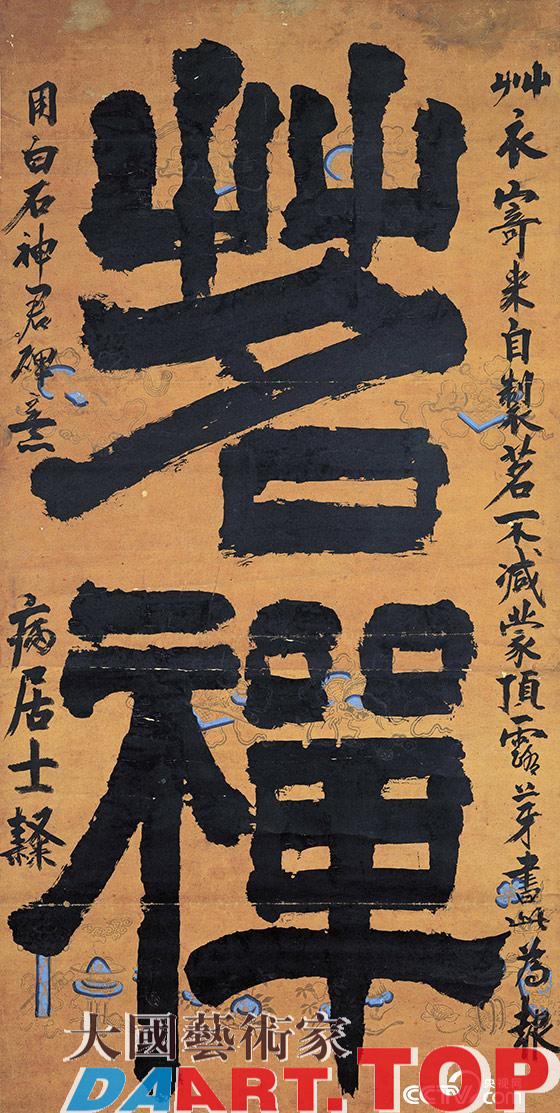 茗禪
艸衣寄來自製茗不減蒙頂露芽書此為報
用白石神君碑意
病居士隸
大國藝術家
DAART.TOP
央视网
CCTV.com